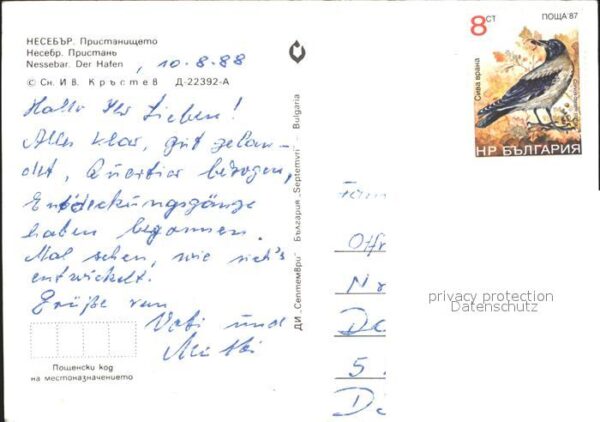 НЕСЕБЪР. Пристанището
Несебр. Пристань
Nessebar. Der Hafen, 10.8.88
© Сн. И В. Кръстев Д-22392-А
Hallo Ihr Lieben!
Alles klar, gut gelan-
det, Quartier bezogen,
Entdeckungsgänge
haben begonnen.
Mal sehen, wie sich's
entwickelt.
Grüße von
Vati und
Mutti
Пощенски код
на местоназначението
ДИ „Септември" България „Septemvri" Bulgaria
8 СТ ПОЩА'87
Сива врана
НР БЪЛГАРИЯ
Fam
Offr
Nr
De
5.
privacy protection
Datenschutz